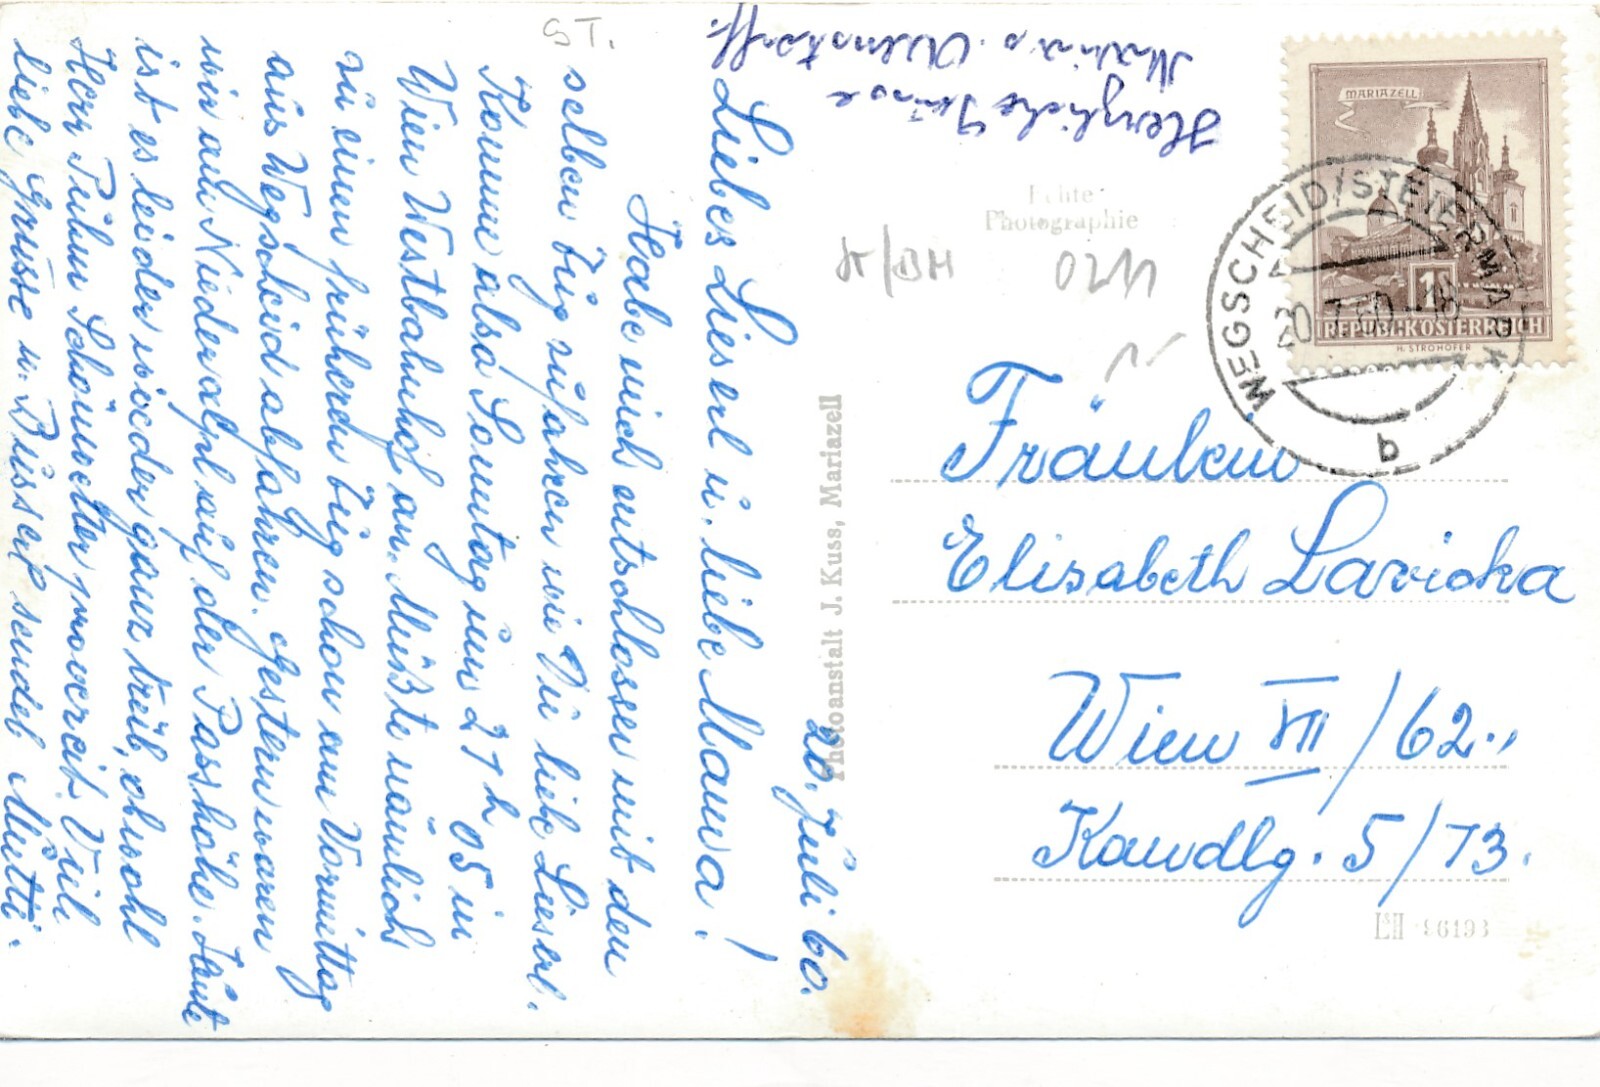 20. Juli 60.
Liebes Lieserl u. liebe Mama!
Habe mich entschlossen mit den
selben Zug zu fahren wie Du liebe Lieserl.
Komme also Sonntag um 21 h 05 in
Wien Westbahnhof an. Müßte nämlich
zu einem früheren Zug schon am Vormittag
aus Wegscheid abfahren. Gestern waren
wir am Niederalpl auf der Passhöhe. Heute
ist es leider wieder ganz trüb, obwohl
Herr Prihm Schönwetter prowezeit. Viele
liebe Grüsse u. Busserl sendet Mutti.
Herzliche Grüsse
ST.
Echte
Photographie
021
Photoanstalt J. Kuss, Mariazell
MARIAZELL
1S
REPUBLIK ÖSTERREICH
H. STROHOFER
WEGSCHEID/STEIERMARK
20.7.60-18
b
Fräulein
Elisabeth Lavicka
Wien VII/62.,
Kandlg. 5/13.
96193